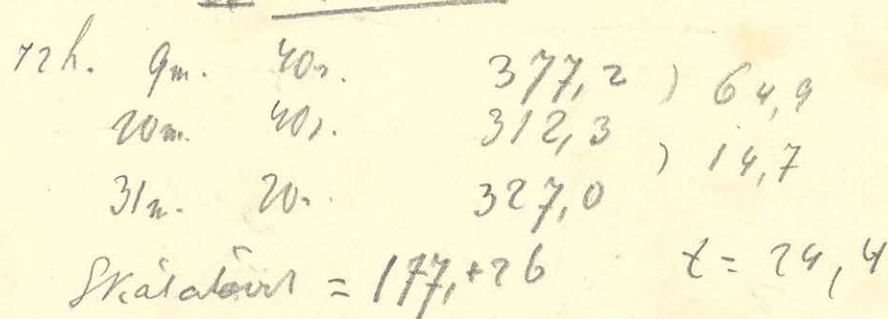 12h. 9m. 40s. 377,2 ) 64,9
20m. 40s. 312,3
) 14,7
31m. 20s. 327,0
Skálatávol = 177,+26 t = 24,4